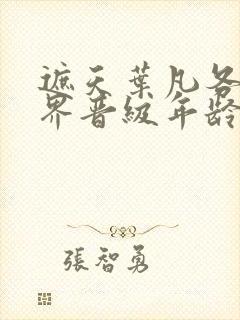 遮天葉凡各
界晉級年齡
張智勇